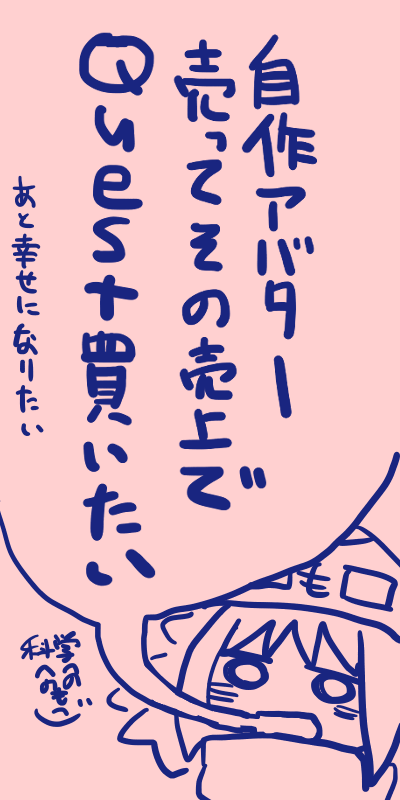 自作アバター
売ってその売上で
Quest買いたい
あと幸せになりたい